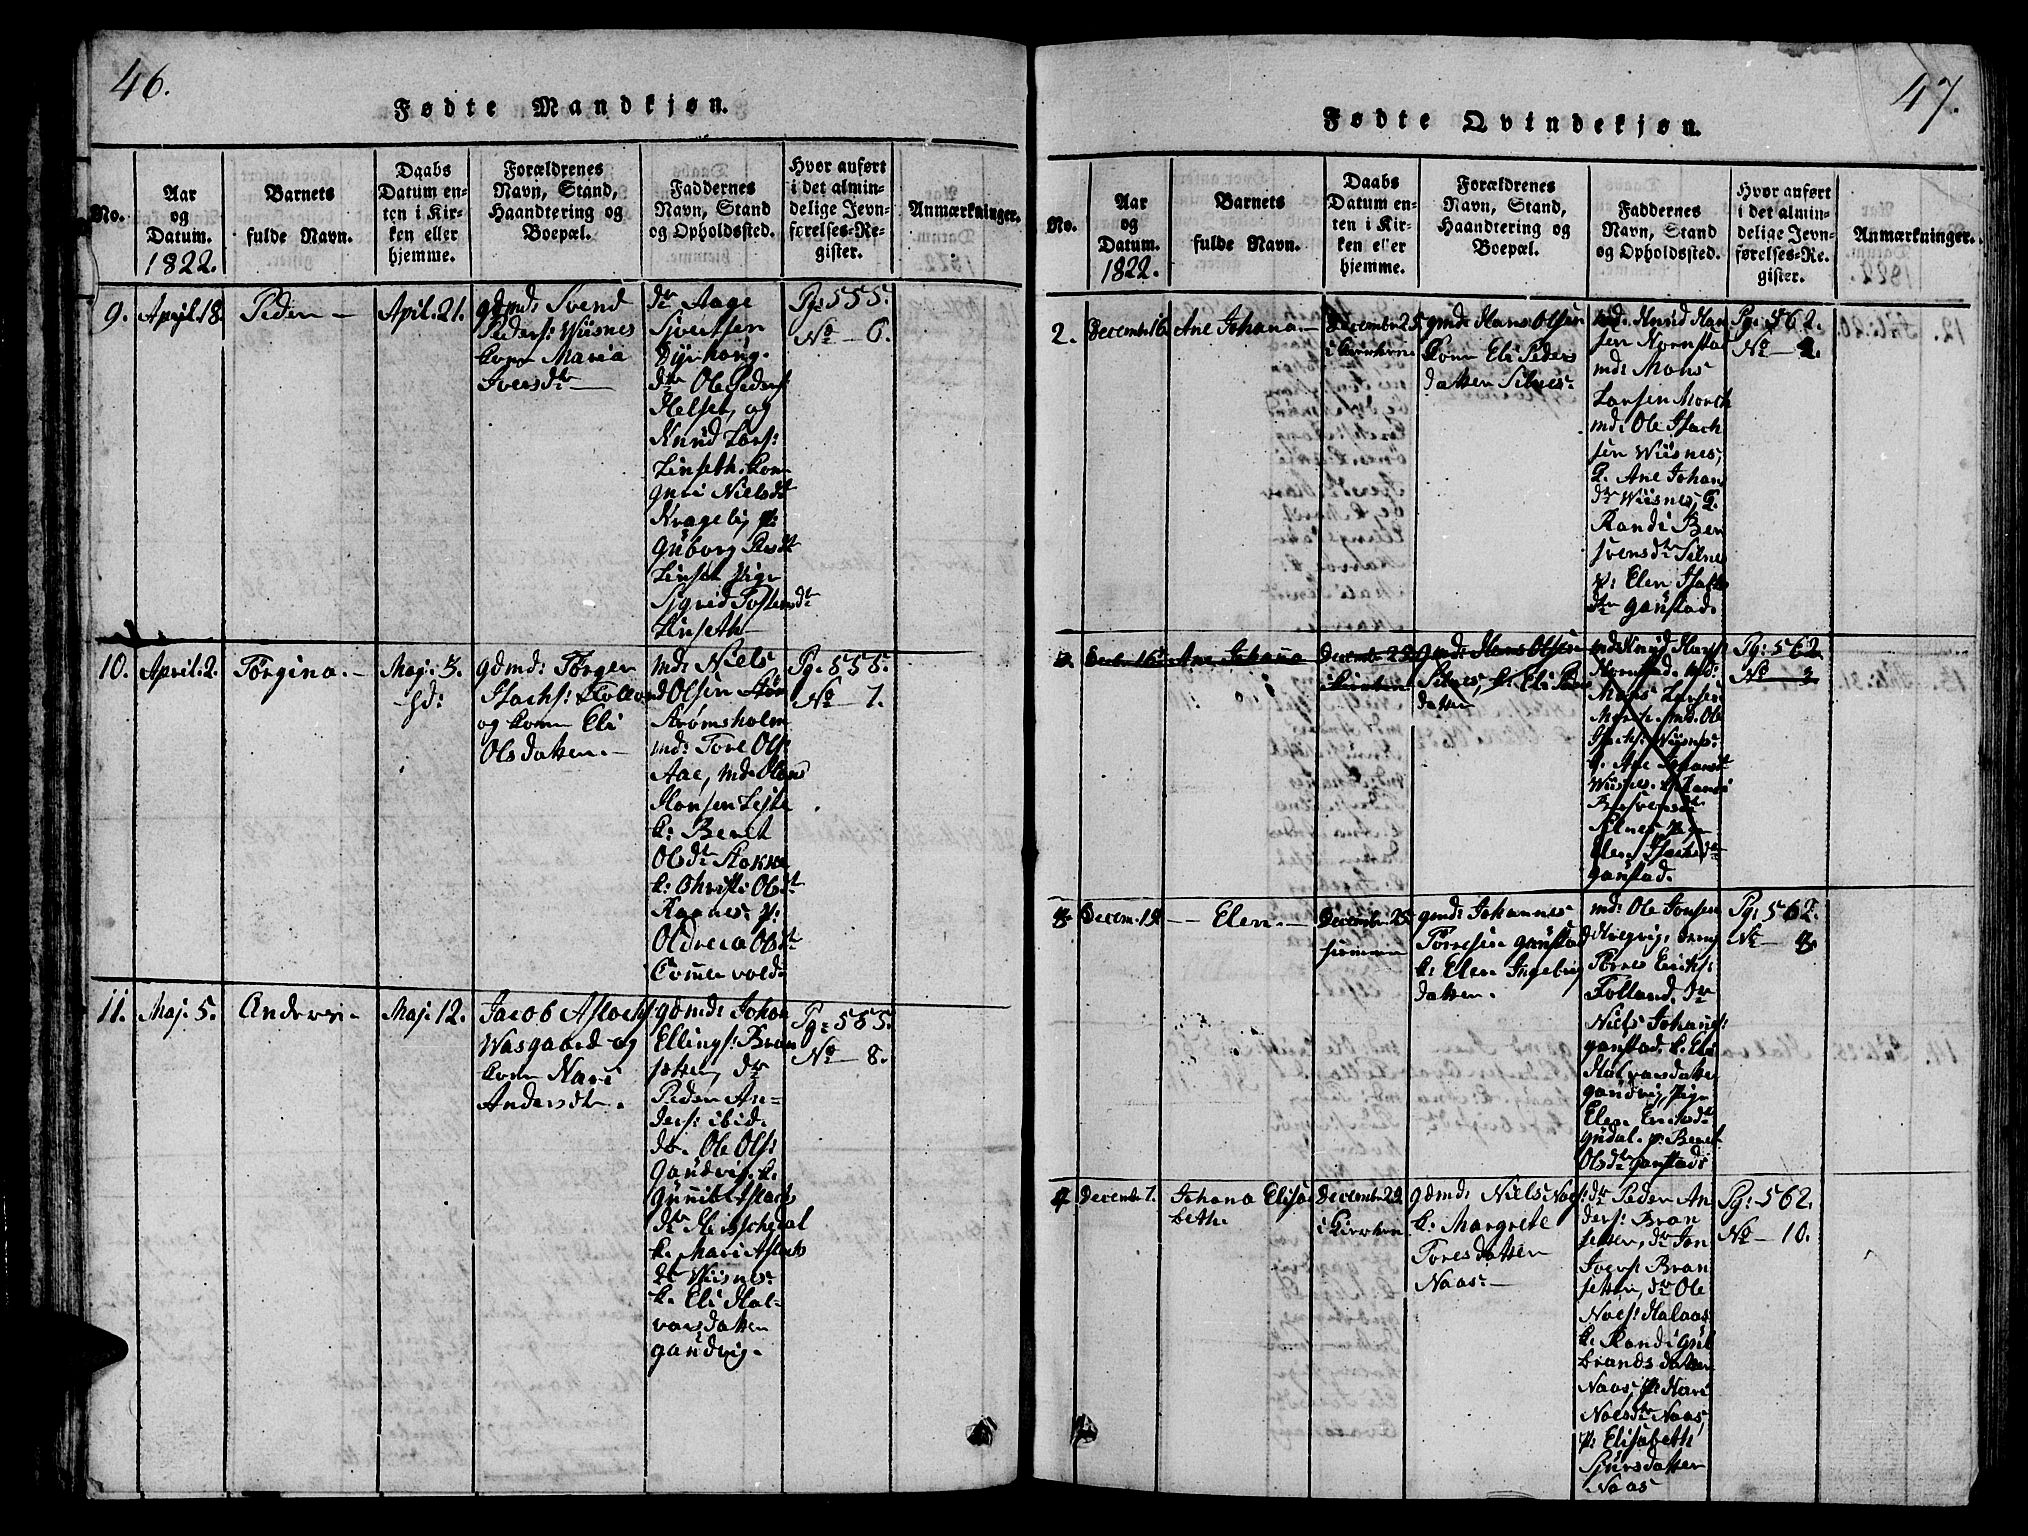 46.
Fødte Mandkjøn.
No.
Aar
og
Datum.
1822.
Barnets
fulde Navn.
Daabs
Datum en-
ten i Kir-
ken eller
hjemme.
Forældrenes
Navn, Stand,
Haandtering og
Boepæl.
Faddernes
Navn, Stand
og Opholdssted.
Hvor anført
i det almin-
delige Jevn-
førelses-Re-
gister.
Anmærkninger.
9.
April 18
Peder
April. 21.
gdmd: Svend
Peders: Wiisnes
kone Maria
Iversdtr
dr Aage
Sjvertsen
Dyrhoug.
dr Ole Peders
Helset, og
Knud Lars:
Linseth. kon
Guri Nielsdt
Kragelij p:
Guborg Persdt
Linset Pige
Sigrid Tostensdt:
Linseth
Pg: 555.
No 6.
10.
April. 2.
Tørgina.
Maj. 3.
Hd:
gdmd: Tørger
Isachs: Folland
og kone Eli
Olsdatter.
md: Niels
Olsen
Strømsholm
md: Tore Ols:
Aae, md: Olens
Hansen
k: Beret
Olsdtr Stokke
k: Christi Olsdt
Raanes: p:
Oldreia Olsdt
Tvinnervold
Pg: 555.
No 7.
11.
Maj. 5.
Anders.
Maj. 12.
Jacob Aslach:
Wasgaard og
kone Mari
Andersdtr.
gdmd: Johan
Ellings: Bran
sætter, dr
Peder An-
ders: ibid.
dr. Ole Ols:
Gaudvig. k.
Gunild Aslachs
dtr
k. Mari Aslachs
dtr Wiisnes
k. Eli Hal-
varsdatter
Gaudvig.
Pg: 555.
No 8.
47.
Fødte Qvindekjøn.
No.
Aar
og
Datum.
1822.
Barnets
fulde Navn.
Daabs
Datum en-
ten i Kir-
ken eller
hjemme.
Forældrenes
Navn, Stand,
Haandtering og
Boepæl.
Faddernes
Navn, Stand
og Opholdssted.
Hvor anført
i det almin-
delige Jevn-
førelses-Re-
gister.
Anmærkninger.
2.
December 16.
Ane Johana
December 25.
i Kirken
gmd: Hans Olsen
kone Eli Peders
datter Silnes.
md. Knud Han
sen Nornstad
md: Mons
Larsen Morch
md: Ole Isach
sen Wiisnes,
P. Ane Johans
dtr Wiisnes, P.
Randi Ber
svensdtr Silnes
p: Elen Isaks
dtr Ganstad.
Pg: 562.
No 2.
Decbr 16.
Ane Johana
December 25.
i Kirken
gmd: Hans Olsen
Silnes, k. Eli Peders
datter
md: Knud Hans:
Nornstad. md:
Mons Larsen
Morch. md. Ole
Isachs: Wiisnes:
P. Ane Johansdt
Wiisnes. P. Randi
Bersvensdt
Silnes, pige
Elen Isachsdtr
Ganstad.
Pg: 562
No 3
3.
Decem. 19.
Elen.
December 25.
hiemme
gmd: Johannes
Torresen Ganstad
k: Elen Ingebrigts
datter.
md: Ole Jonsen
Tørres Eriks:
Folland. dr
Niels Johans:
Ganstad. k. Eli
Halvarsdatter
Gaudvig, Pige
Elen Ericksdt
Gudal. p: Beret
Olsdtr Ganstads
Pg: 562.
No 3
4
December 7.
Johana Elisa
beth.
December 29.
i Kirken
gdmd: Niels Noes:
k. Margrete
Toresdatter
Naas:
dr Peder An
ders: Bran
setter, dr Jon
Joers: Bran
setter, dr Ole
Noes: Halaas
k. Randi Gul
brandsdatter
Naas, p: Mari
Noesdtr Naas,
p: Elisabeth
Sjursdatter
Naas
Pg: 562.
No 10.